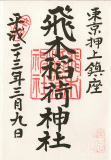 東京押上鎮座
飛木稲荷神社
平成二十三年三月九日